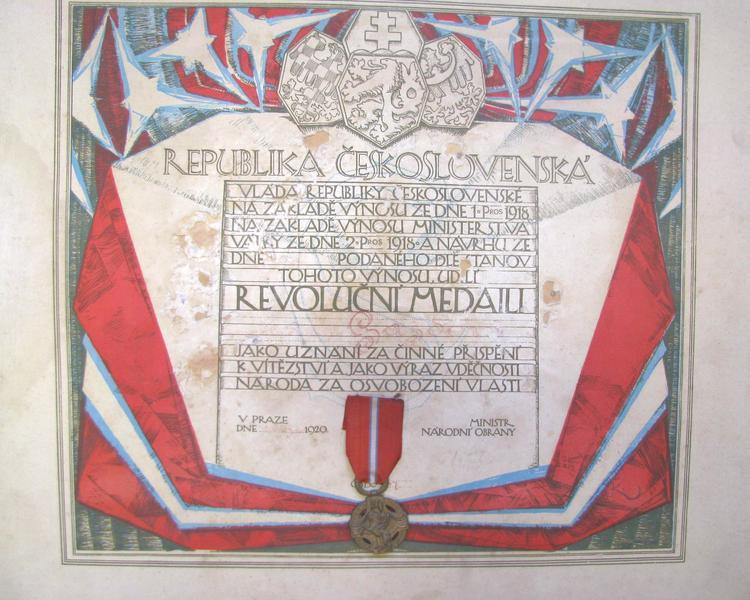 REPUBLIKA ČESKOSLOVENSKÁ
VLÁDA REPUBLIKY ČESKOSLOVENSKÉ
NA ZÁKLADĚ VÝNOSU ZE DNE 1. PROS 1918
NA ZÁKLADĚ VÝNOSU MINISTERSTVA
VÁLKY ZE DNE 2. PROS 1918 A NÁVRHU ZE
DNE PODANÉHO DLE STANOV
TOHOTO VÝNOSU, UDÍLÍ
REVOLUČNÍ MEDAILI
JAKO UZNÁNÍ ZA ČINNÉ PŘISPĚNÍ
K VÍTĚZSTVÍ A JAKO VÝRAZ VDĚČNOSTI
NÁRODA ZA OSVOBOZENÍ VLASTI
V PRAZE
DNE 1920
MINISTR
NÁRODNÍ OBRANY